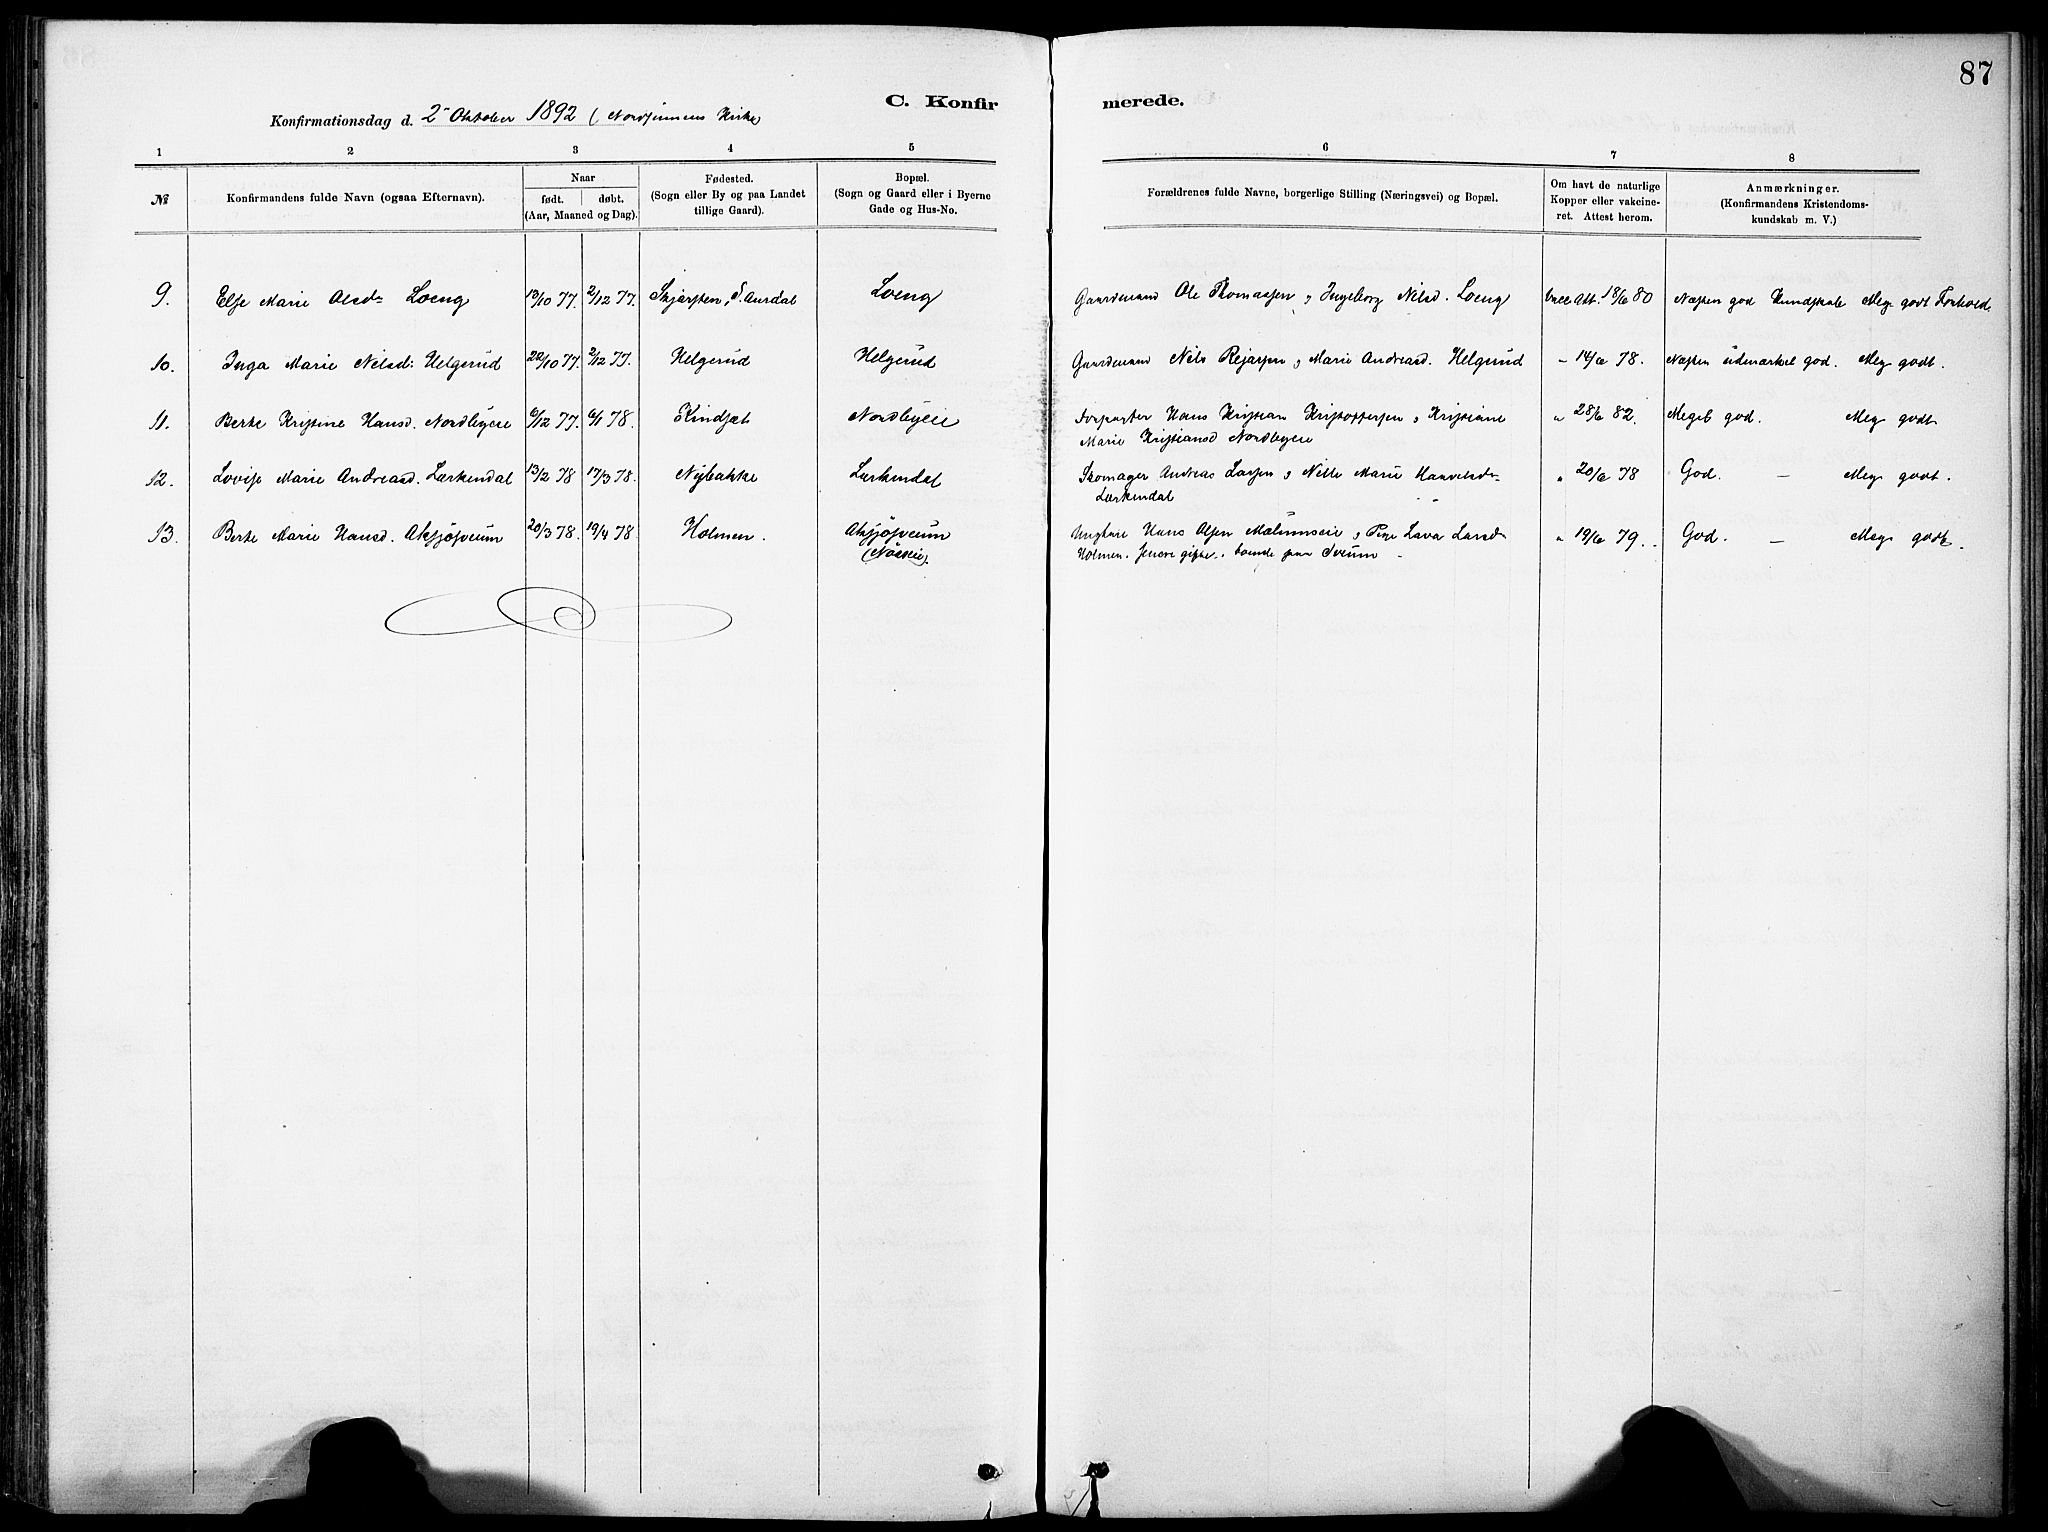 87
C. Konfir merede.
Konfirmationsdag d. 2 Oktober 1892 (Nordsinnens Kirke)
1 2 3 4 5 6 7 8
№
Konfirmandens fulde Navn (ogsaa Efternavn).
Naar
født. døbt.
(Aar, Maaned og Dag).
Fødested.
(Sogn eller By og paa Landet
tillige Gaard).
Bopæl.
(Sogn og Gaard eller i Byerne
Gade og Hus-No.
Forældrenes fulde Navne, borgerlige Stilling (Næringsvei) og Bopæl.
Om havt de naturlige
Kopper eller vakcine-
ret. Attest herom.
Anmærkninger.
(Konfirmandens Kristendoms-
kundskab m. V.)
9. Else Marie Olsd. Loeng 13/10 77. 2/12 77. S. Aurdal Loeng Gaardmand Ole Thomassen, Ingeborg Nilsd. Loeng Att. 18/6 80 Næsten god Kundskab Meg. godt Forhold.
10. Inga Marie Nilsd: Helgerud 22/10 77. 2/12 77. Helgerud Helgerud Gaardmand Nils Rejersen, Marie Andreasd. Helgerud - 14/6 78. Næsten udmærket god. Meg. godt.
11. Berte Kristine Hansd. Nordbyeie 6/12 77. 6/1 78. Kindset Nordbyeie Hans Kristian Kristoffersen, Kristiane " 28/6 82. Meget god. Meg. godt
Marie Kristiansd Nordbyeie
12. Lovise Marie Andreasd. Lærkendal 13/2 78 17/3 78. Nybakke Lærkendal Skomager Andreas Larsen, Nille Marie " 20/6 78 God. - Meg. godt.
Lærkendal
13. Berte Marie Hansd. 20/3 78. 19/4 78 Holmen. Ungkarl Hans Olsen, Pige Lava Larsd. " 19/6 79. God. - Meg. godt.
Holmen. senere gifte, boende paa